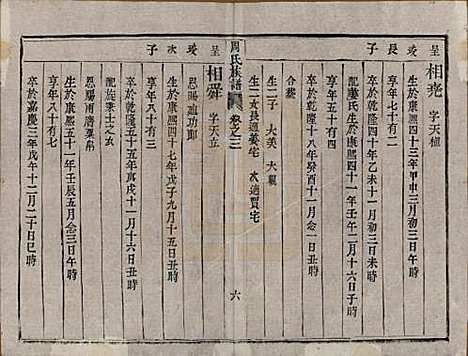 呈琰長子
相堯 字天植
生於康熙四十三年甲申三月初三日午時
享年七十有二
卒於乾隆四十年乙未十一月初三日未時
配婁氏生於康熙四十一年壬午二月十六日子時
享年五十有四
卒於乾隆十八年癸酉十一月 念五日寅時
合葬
生二子 大美 大
生二女長適姜宅 次適賈宅
周氏族譜 卷之三 六
呈琰次子
相舜 字天立
生於康熙四十七年戊子九月十五日丑時
恩賜迪功郎
享年八十有三
卒於乾隆五十五年庚戌十一月十六日丑時
配族李士之女
恩賜兩膺粟帛
生於康熙五十一年壬辰五月念三日午時
享年八十有七
卒於嘉慶三年戊午十二月二十日巳時